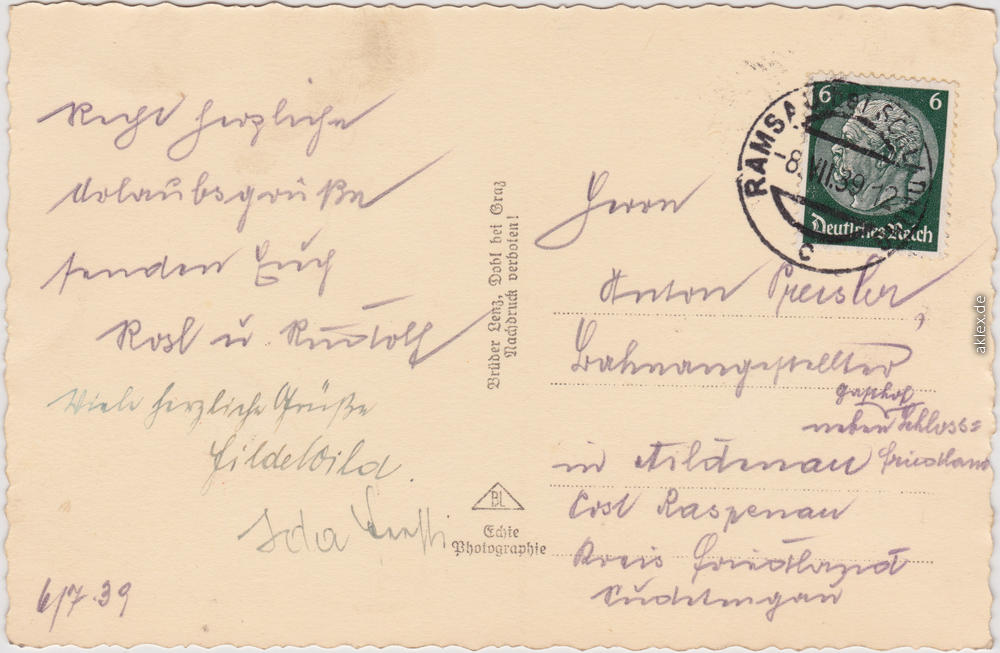 Recht herzliche
Urlaubsgrüße
senden Euch
Rosl u Rudolf
Viele herzliche Grüße
Hilde Wild.
Ida
6/7.39
Brüder Lenz, Dobl bei Graz
Nachdruck verboten!
BL
Echte
Photographie
6 6
Deutsches Reich
RAMSAU
-8.VII.39-12
c
Herrn
Anton Preisler,
Bahnangestellter
Gasthof
neben Schloss=
in Mildenau Friedland
Post Raspenau
Kreis Friedland
Sudetengau
aklex.de